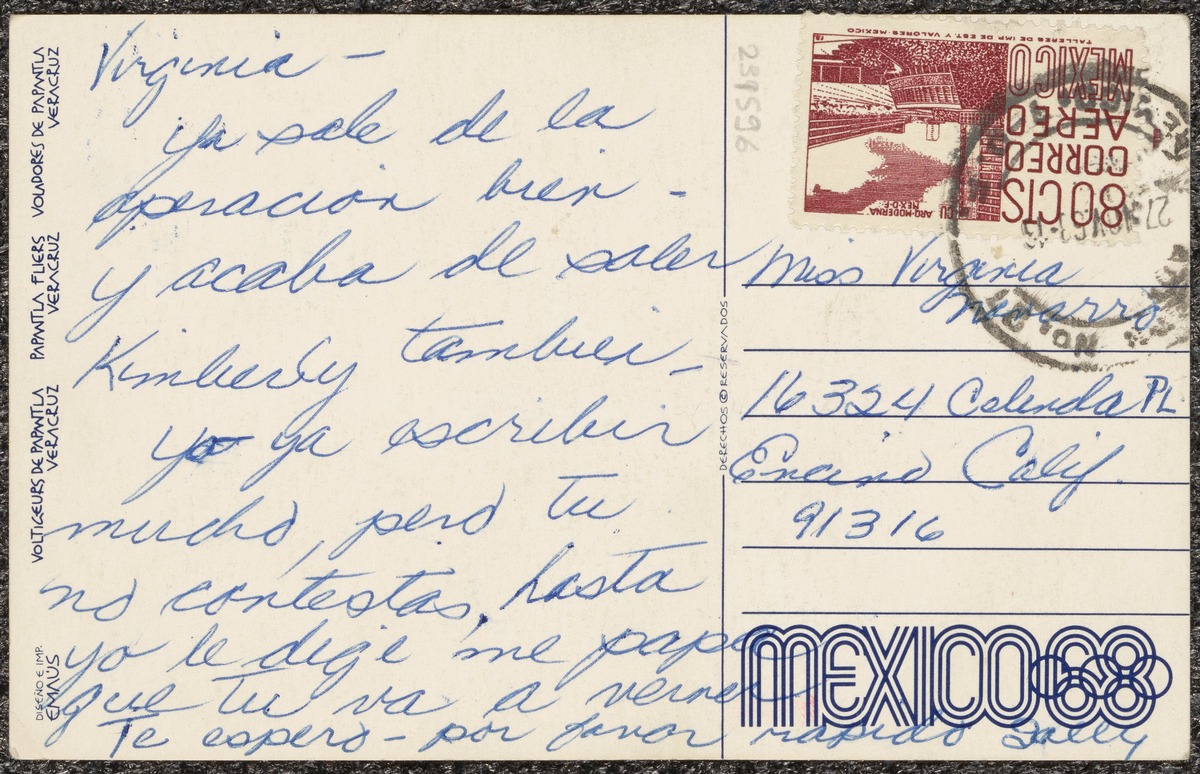 Virginia -
ya sale de la
operacion bien -
y acaba de saler
Kimberly tambien -
yo ya escribir
mucho, pero tu
no contestas, hasta
yo le dige me papa
que tu va a verner
Te espero - por favor rapido Sally
VOLADORES DE PAPANTLA
VERACRUZ
PAPANTLA FLIERS
VERACRUZ
VOLTIGEURS DE PAPANTLA
VERACRUZ
DISEÑO E IMP.
EMAUS
DERECHOS © RESERVADOS
239596
TALLERES DE IMP. DE EST. Y VALORES-MEXICO
MEXICO
AEREO
CORREO
80 CTS
ARQ-MODERNA
MEX-D-F-
Miss Virginia
Navarro
16324 Celinda PL
Encino Calif.
91316
MEXICO68